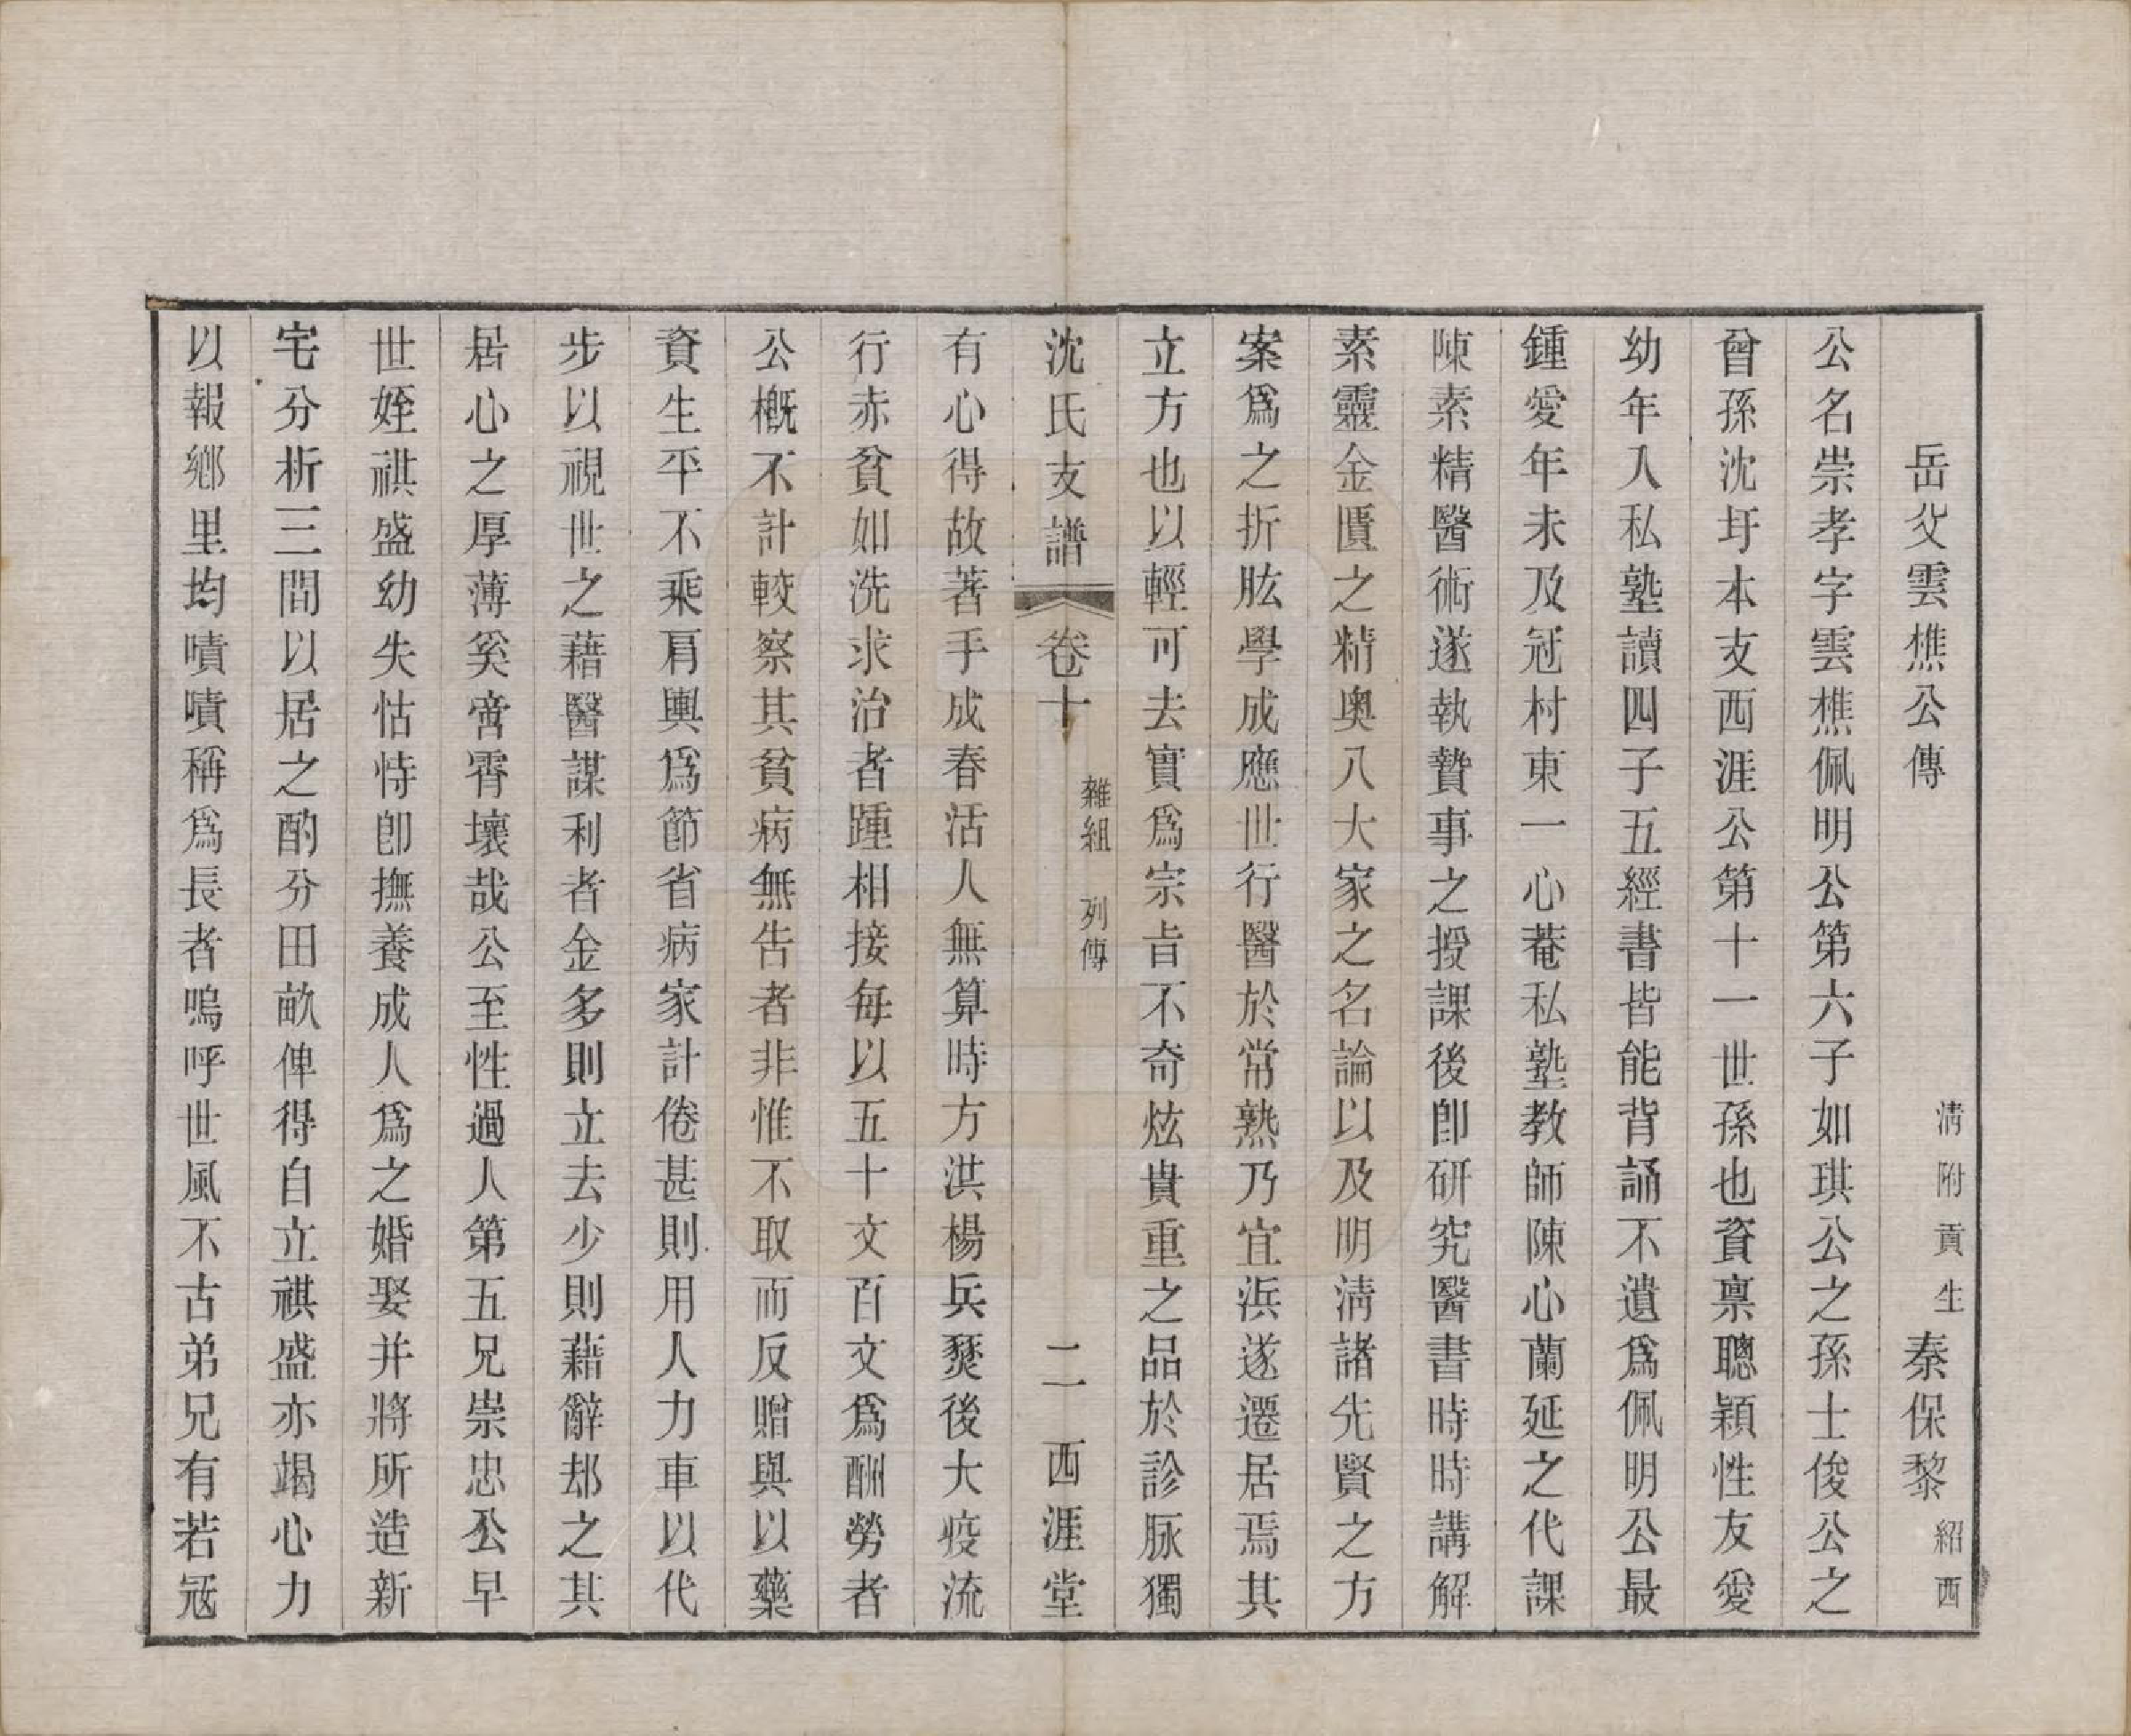 岳父雲樵公傳　清附貢生秦保黎紹西
公名崇孝字雲樵佩明公第六子如琪公之孫士俊公之
曾孫沈圩本支西涯公第十一世孫也資禀聰穎性友愛
幼年入私塾讀四子五經書皆能背誦不遺爲佩明公最
鍾愛年未及冠村東一心菴私塾教師陳心蘭延之代課
陳素精醫術遂執贄事之授課後卽研究醫書時時講解
素靈金匱之精奧八大家之名論以及明淸諸先賢之方
案爲之折肱學成應世行醫於常熟乃宜浜遂遷居焉其
立方也以輕可去實爲宗旨不奇炫貴重之品於診脉獨
沈氏支譜　卷十　雜組　列傳　二　西涯堂
有心得故著手成春活人無算時方洪楊兵燹後大疫流
行赤貧如洗求治者踵相接每以五十文百文爲酬勞者
公概不計較察其貧病無告者非惟不取而反贈與以藥
資生平不乘肩輿爲節省病家計倦甚則用人力車以代
步以視世之藉醫謀利者金多則立去少則藉辭却之其
居心之厚薄奚啻霄壤哉公至性過人第五兄崇忠公早
世姪祺盛幼失怙恃卽撫養成人爲之婚娶并將所造新
宅分析三間以居之酌分田畝俾得自立祺盛亦竭心力
以報鄕里均嘖嘖稱爲長者嗚呼世風不古弟兄有若冦